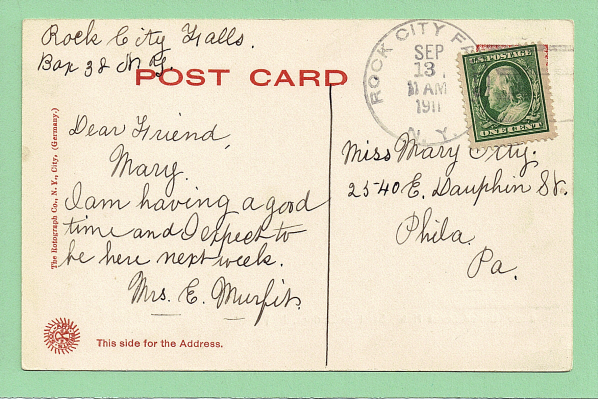 Rock City Falls.
Box 38 N.Y.
POST CARD
ROCK CITY F
SEP
13
11 AM
1911
N. Y.
U.S. POSTAGE
ONE CENT
Dear Friend,
Mary.
I am having a good
time and I expect to
be here next week.
Mrs. E. Murfit.
Miss Mary
2540 E. Dauphin St.
Phila.
Pa.
The Rotograph Co., N. Y., City, (Germany.)
This side for the Address.